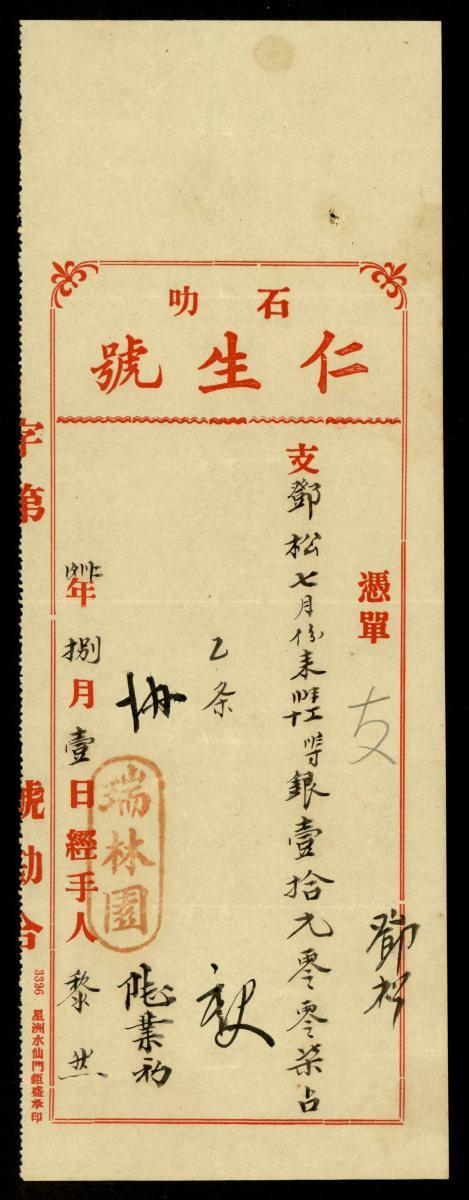 石叻
仁生號
憑單
支
鄧松
支鄧松七月份來 銀壹拾元零零柒占
乙条
瑞林園
年捌月壹日經手人黎然
字第 號勘合
3396 星洲水仙門鉅盛承印